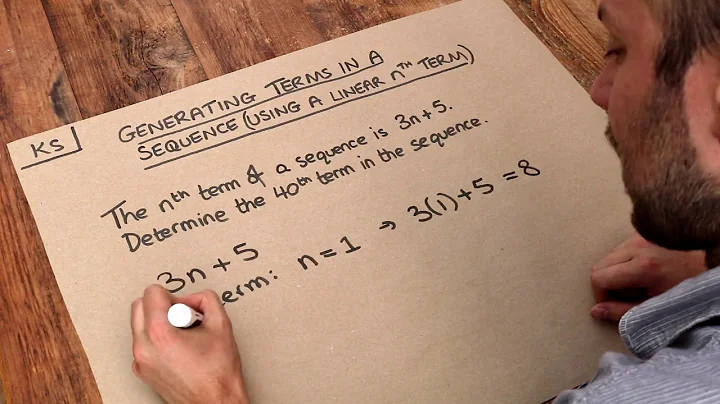 KS
GENERATING TERMS IN A
SEQUENCE (USING A LINEAR nᵀᴴ TERM)
The nᵗʰ term of a sequence is 3n+5.
Determine the 40ᵗʰ term in the sequence.
3n+5
n=1 → 3(1)+5=8